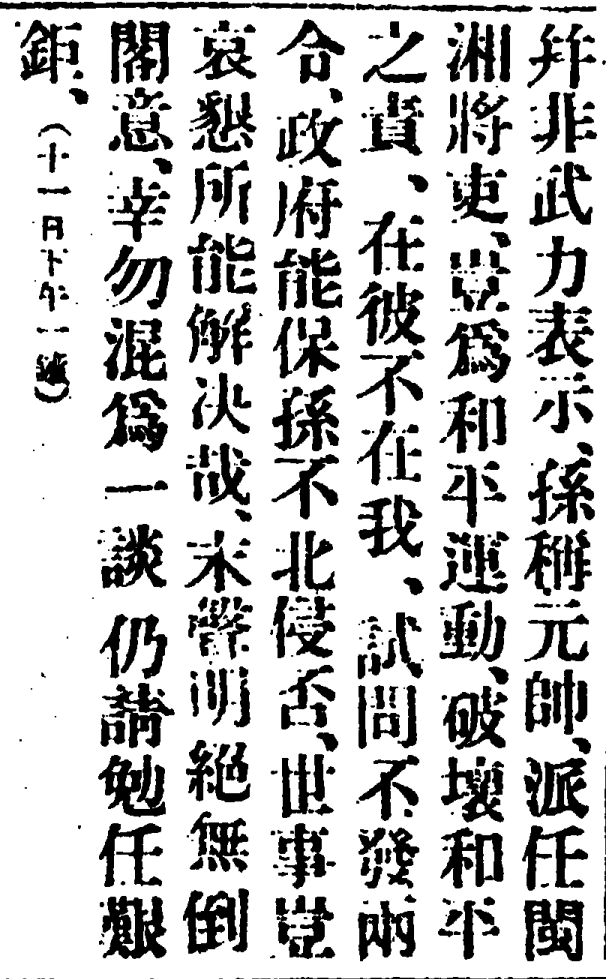 幷非武力表示、孫稱元帥、派任閩
湘將吏、豈爲和平運動、破壞和平
之責、在彼不在我、試問不發兩
令、政府能保孫不北侵否、世事豈
哀懇所能解決哉、末聲明絕無倒
閣意、幸勿混爲一談 仍請勉任艱
鉅、(十一日下午一號)